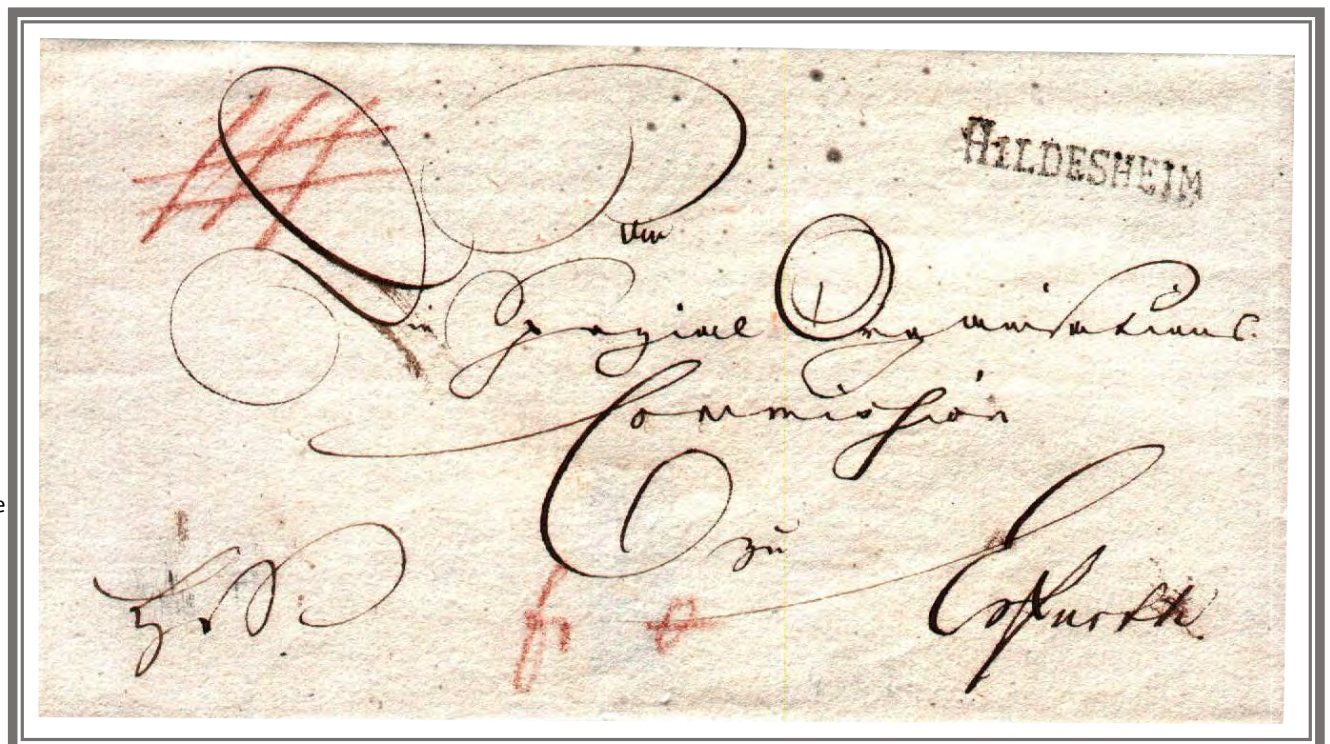 HILDESHEIM
An
Die Spezial Organisations
Commission
zu
Erfurth